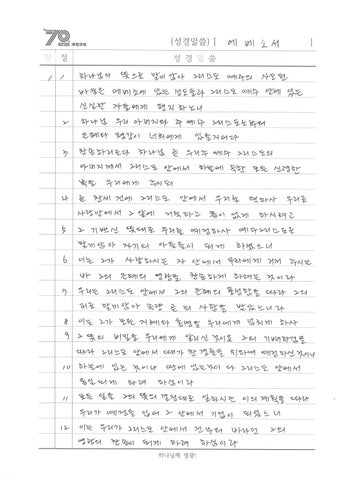 70 과천교회
(성경말씀) [ 에베소서 ]
장 절 성경말씀
1 1 하나님의 뜻으로 말미암아 그리스도 예수의 사도된
바울은 에베소에 있는 성도들과 그리스도 예수 안에 있는
신실한 자들에게 편지하노니
2 하나님 우리 아버지와 주 예수 그리스도로부터
은혜와 평강이 너희에게 있을지어다
3 찬송하리로다 하나님 곧 우리 주 예수 그리스도의
아버지께서 그리스도 안에서 하늘에 속한 모든 신령한
복을 우리에게 주시되
4 곧 창세 전에 그리스도 안에서 우리를 택하사 우리로
사랑 안에서 그 앞에 거룩하고 흠이 없게 하시려고
5 그 기쁘신 뜻대로 우리를 예정하사 예수 그리스도로
말미암아 자기의 아들들이 되게 하셨으니
6 이는 그가 사랑하시는 자 안에서 우리에게 거저 주시는
바 그의 은혜의 영광을 찬송하게 하려는 것이라
7 우리는 그리스도 안에서 그의 은혜의 풍성함을 따라 그의
피로 말미암아 속량 곧 죄 사함을 받았느니라
8 이는 그가 모든 지혜와 총명을 우리에게 넘치게 하사
9 그 뜻의 비밀을 우리에게 알리신 것이요 그의 기뻐하심을
따라 그리스도 안에서 때가 찬 경륜을 위하여 예정하신 것이니
10 하늘에 있는 것이나 땅에 있는 것이 다 그리스도 안에서
통일되게 하려 하심이라
11 모든 일을 그의 뜻의 결정대로 일하시는 이의 계획을 따라
우리가 예정을 입어 그 안에서 기업이 되었으니
12 이는 우리가 그리스도 안에서 전부터 바라던 그의
영광의 찬송이 되게 하려 하심이라
하나님께 영광!